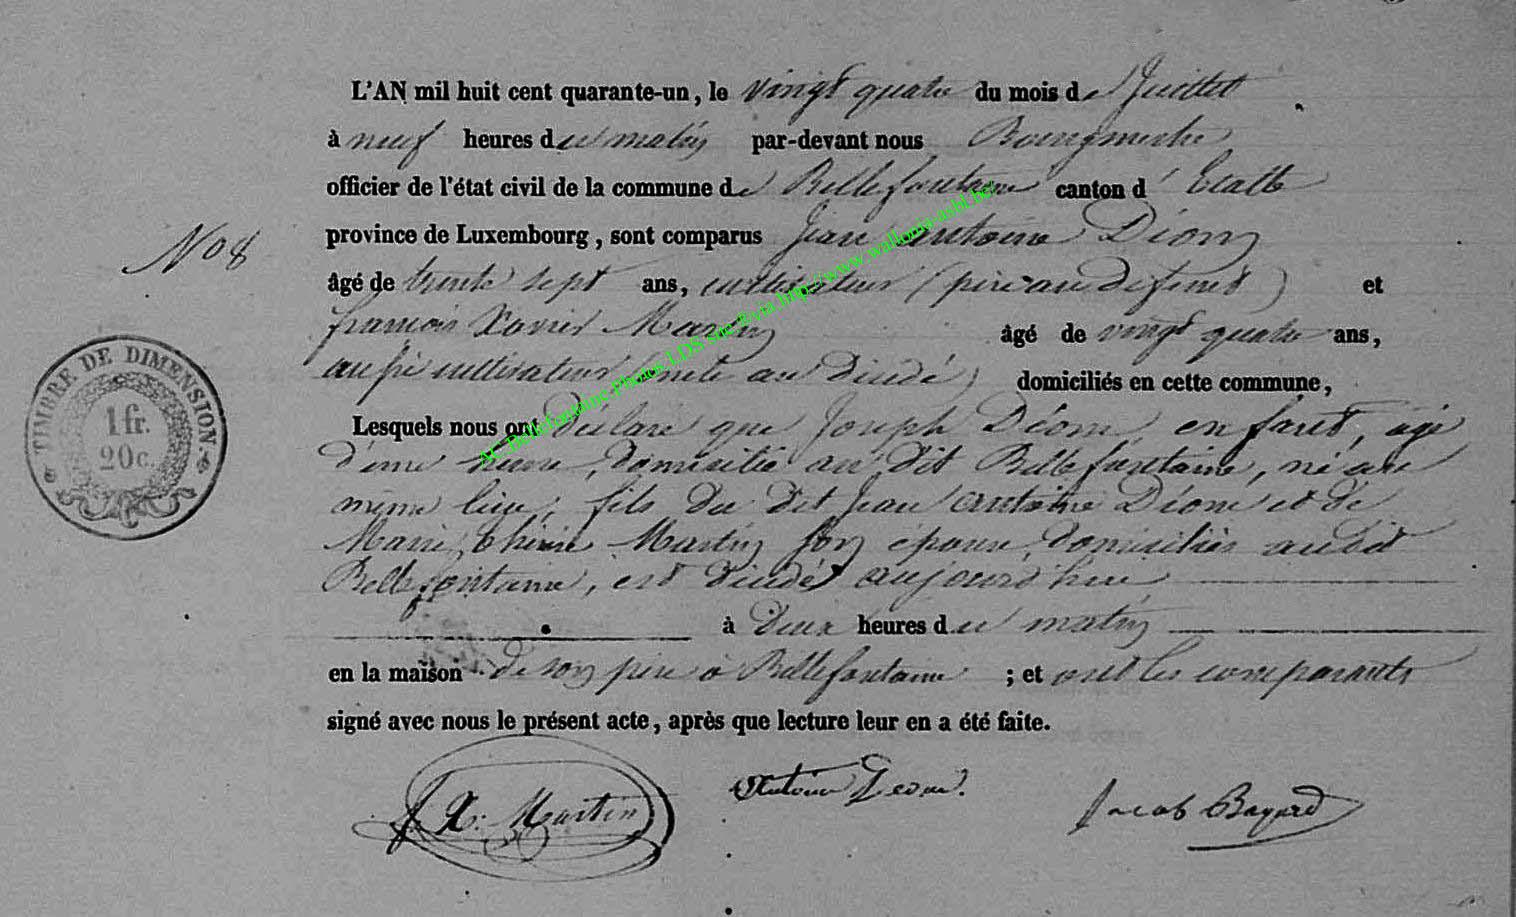 L'AN mil huit cent quarante-un, le vingt quatre du mois de Juillet
à neuf heures du matin par-devant nous Bourgmestre
officier de l'état civil de la commune de Bellefontaine canton d' Etalle
province de Luxembourg, sont comparus Jean Antoine Déom
N° 8
âgé de trente sept ans, cultivateur (père au défunt) et
françois Xavier Martin âgé de vingt quatre ans,
aussi cultivateur au décédé) domiciliés en cette commune,
TIMBRE DE DIMENSION
1 fr.
20 c.
Lesquels nous ont déclaré que Joseph Déom, enfant, agé
d'une heure, domicilié au dit Bellefontaine, né au
même lieu, fils du dit Jean Antoine Déom et de
Marie Thérèse Martin son épouse, domiciliés audit
Bellefontaine, est décédé aujourd'hui
à Deux heures du matin
en la maison de son père à Bellefontaine ; et ont les comparants
signé avec nous le présent acte, après que lecture leur en a été faite.
f X. Martin
Antoine Déom.
Jacob Bayard
AC Bellefontaine-Photos LDS site &via http://www.wallonia-asbl.be/